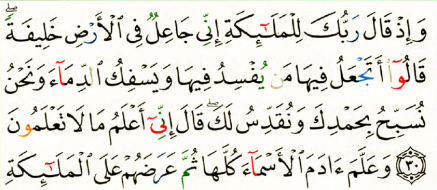 وَإِذْ قَالَ رَبُّكَ لِلْمَلَٰٓئِكَةِ إِنِّى جَاعِلٌ فِى ٱلْأَرْضِ خَلِيفَةً ۖ
قَالُوٓا۟ أَتَجْعَلُ فِيهَا مَن يُفْسِدُ فِيهَا وَيَسْفِكُ ٱلدِّمَآءَ وَنَحْنُ
نُسَبِّحُ بِحَمْدِكَ وَنُقَدِّسُ لَكَ ۖ قَالَ إِنِّىٓ أَعْلَمُ مَا لَا تَعْلَمُونَ
۝٣٠ وَعَلَّمَ ءَادَمَ ٱلْأَسْمَآءَ كُلَّهَا ثُمَّ عَرَضَهُمْ عَلَى ٱلْمَلَٰٓئِكَةِ